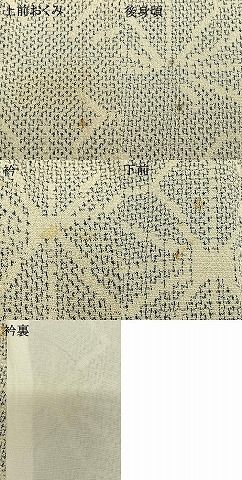 上前おくみ
後身頃
衿
下前
衿裏